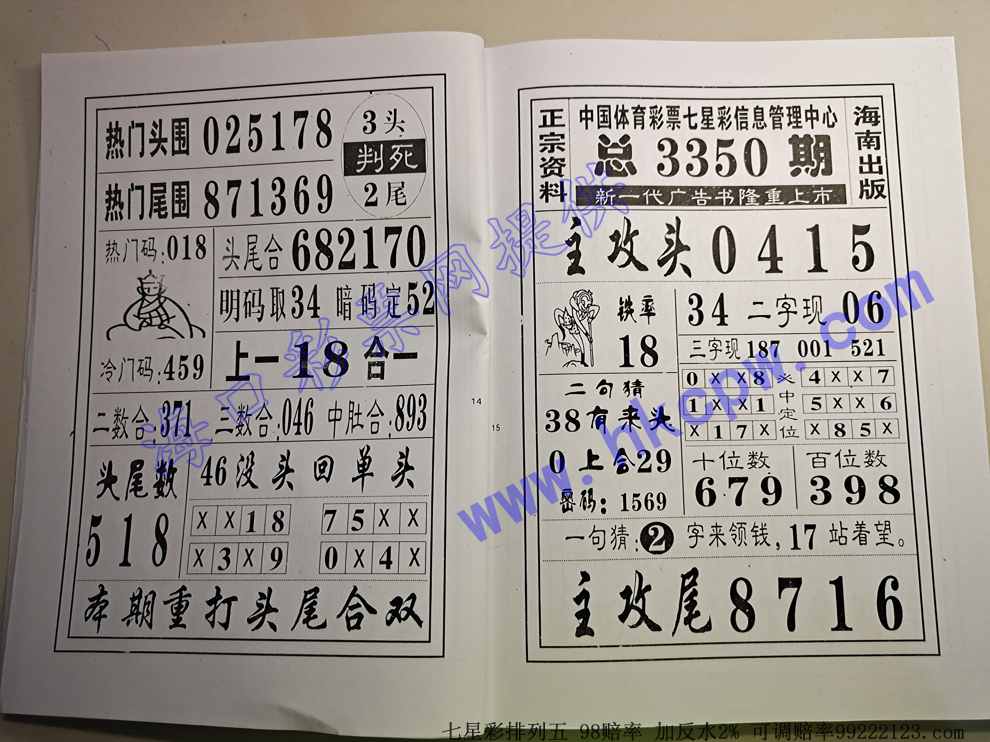 热门头围 025178
3头
判死
2尾
热门尾围 871369
热门码:018
头尾合 682170
明码取34 暗码定52
冷门码:459
上一18合一
二数合:371 三数合:046 中肚合:893
头尾数
518
46没头回单头
XX18 75XX
X3X9 0X4X
本期重打头尾合双
14
15
正宗资料
中国体育彩票七星彩信息管理中心
总 3350 期
新一代广告书隆重上市
海南出版
主攻头 0415
铁率
18
34 二字现 06
三字现 187 001 521
二句猜
38有来头
0上合29
密码:1569
0XX8 4XX7
1XX1 5XX6
X17X X85X
中定位
十位数
679
百位数
398
一句猜:2字来领钱,17站着望。
主攻尾 8716
海口彩票网提供
www.hkcpw.com
七星彩排列五 98赔率 加反水2% 可调赔率99222123.com